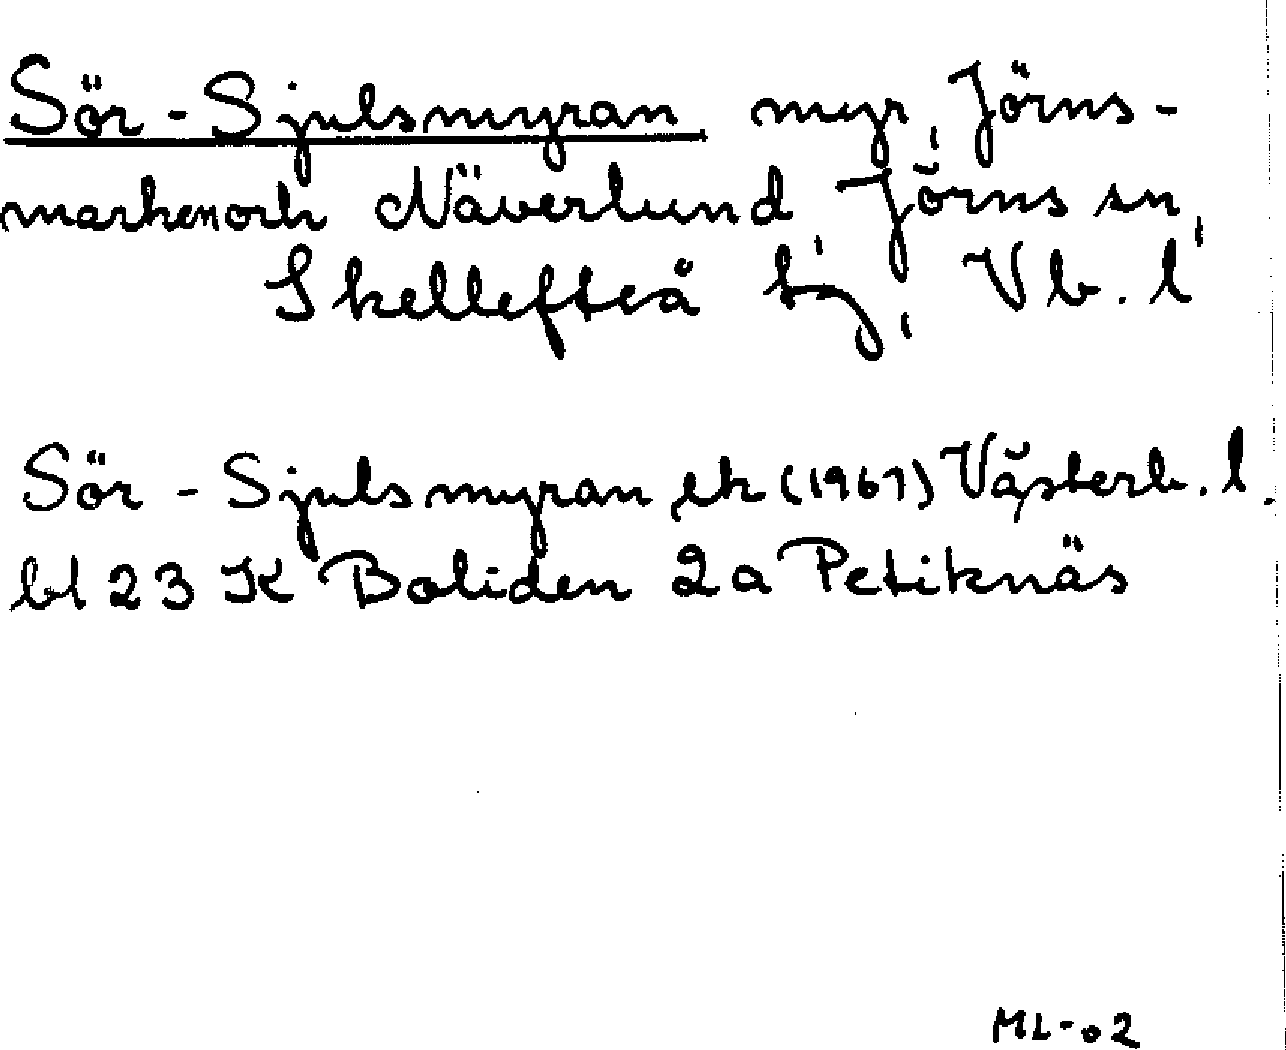 Sör-Sjulsmyran myr, Jörns-
marken och Näverlund, Jörns sn,
Skellefteå tg, Vb. l
Sör-Sjulsmyran ek (1967) Västerb. l.
bl 23 K Boliden 2a Petiknäs
ML-02